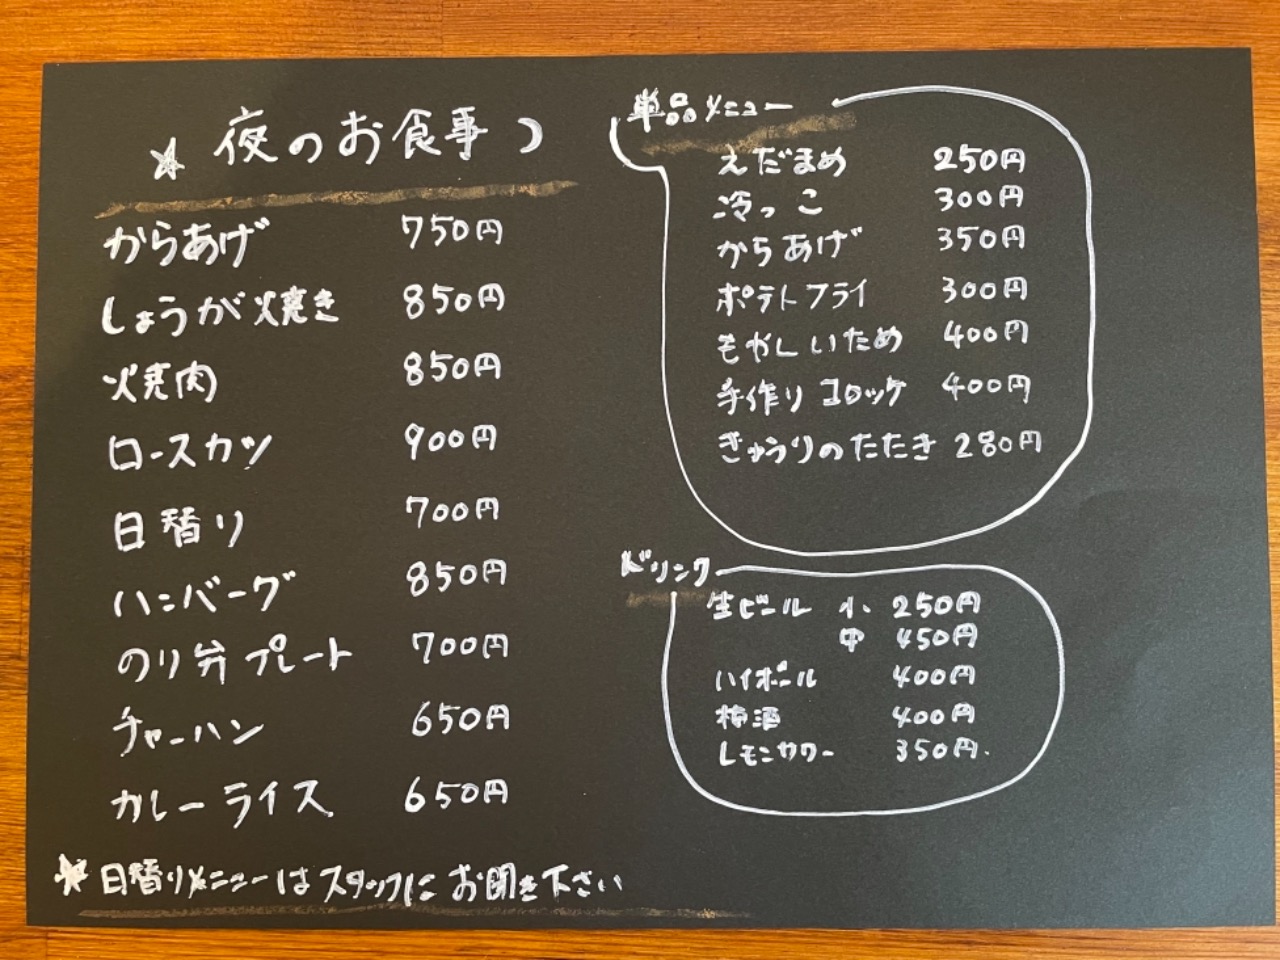 夜のお食事
からあげ 750円
しょうが焼き 850円
焼肉 850円
ロースカツ 900円
日替り 700円
ハンバーグ 850円
のり弁プレート 700円
チャーハン 650円
カレーライス 650円
日替りメニューはスタッフにお聞き下さい
単品メニュー
えだまめ 250円
冷っこ 300円
からあげ 350円
ポテトフライ 300円
もやしいため 400円
手作りコロッケ 400円
きゅうりのたたき 280円
ドリンク
生ビール 小 250円
中 450円
ハイボール 400円
梅酒 400円
レモンサワー 350円.